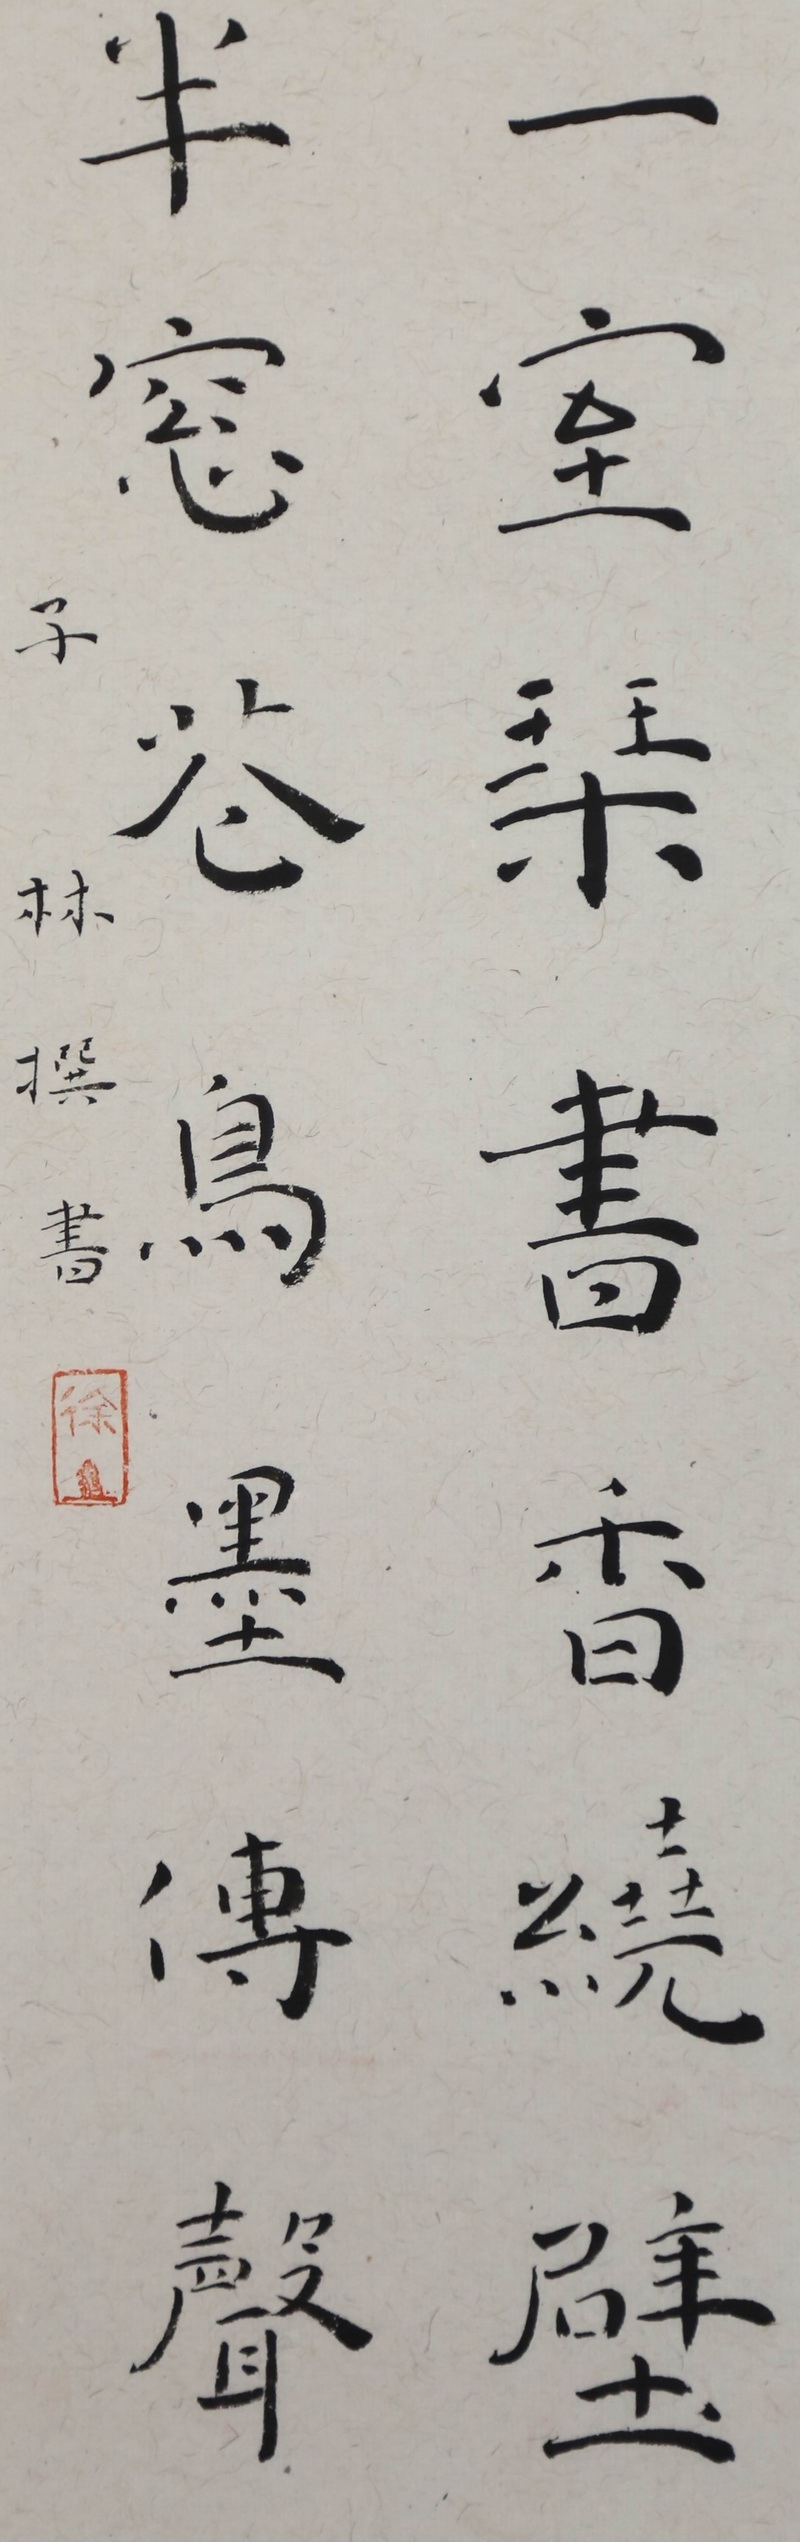 一室琹書香繞壁
半窓苍鳥墨傳聲
子林撰書
徐